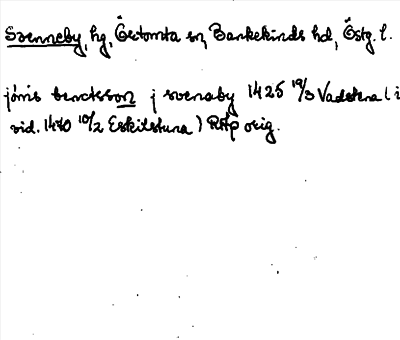 Svenneby, hg, Östomta sn, Bankekinds hd, Östg. l.
jönis benctsson j svenaby 1425 19/3 Vadstena ( i
vid. 1470 10/2 Eskilstuna ) RAp orig.